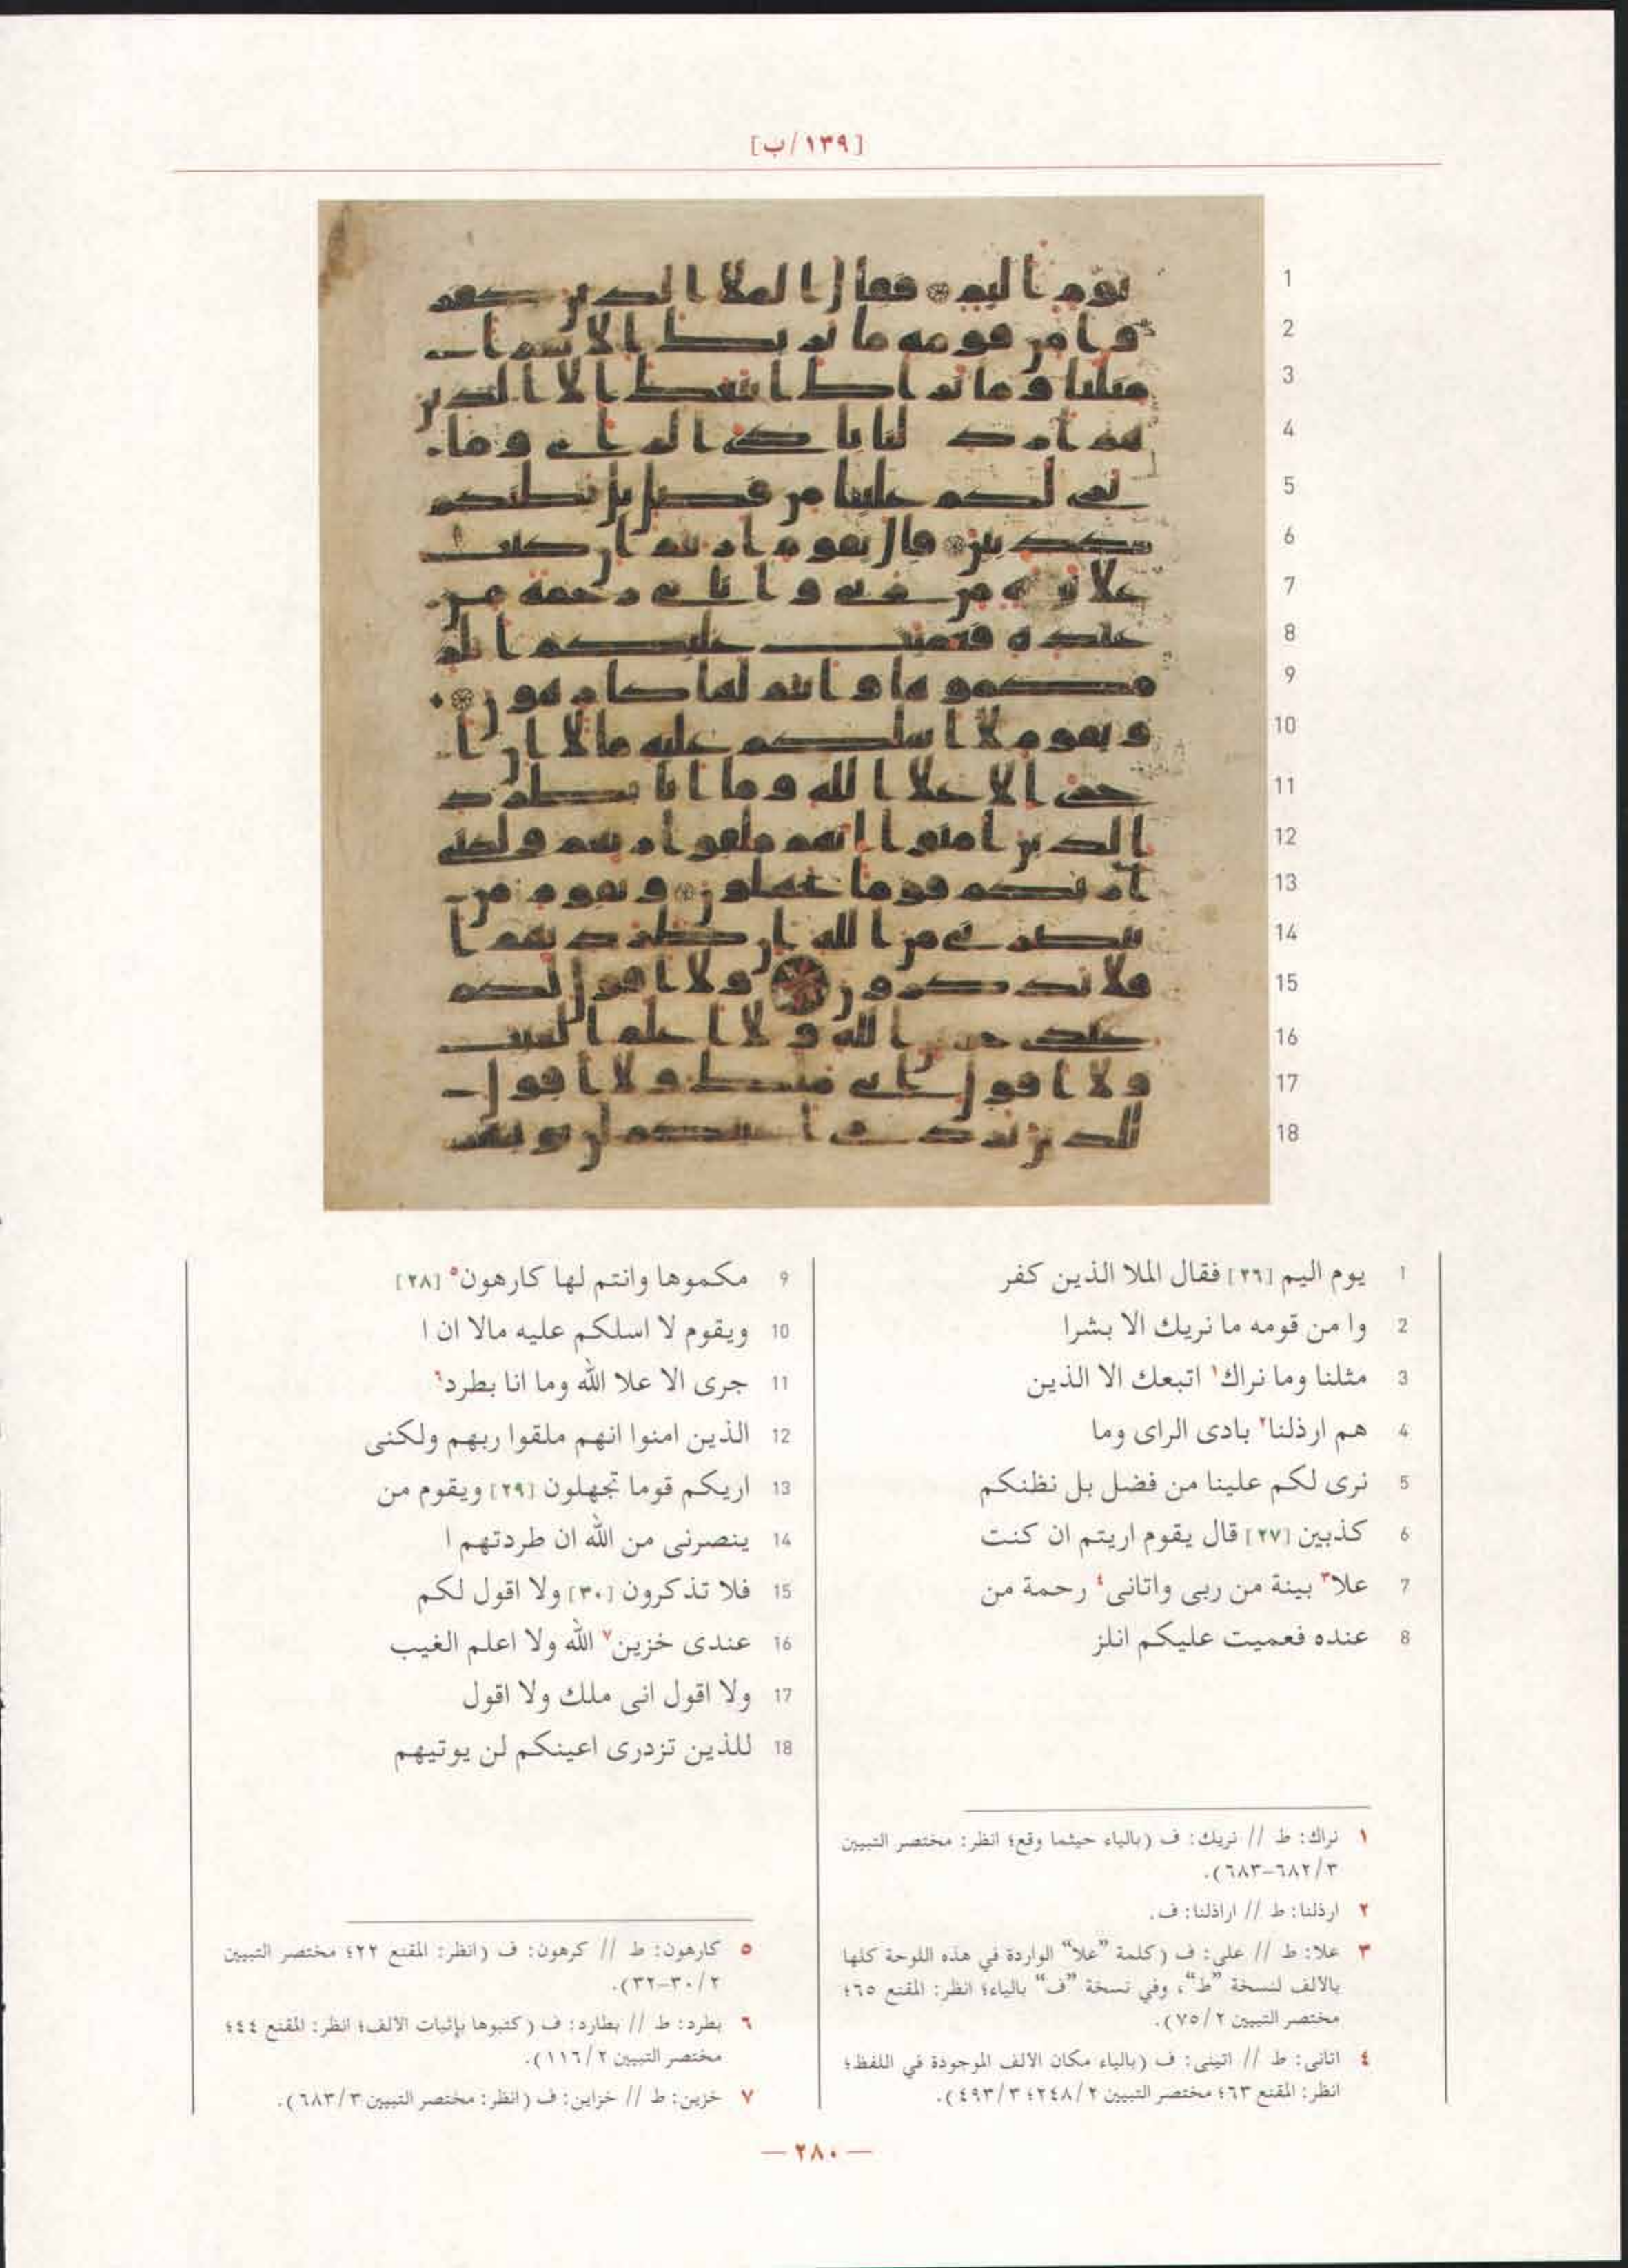 [١٣٩/ب]
1 يوم اليم [٢٦] فقال الملا الذين كفر
2 وا من قومه ما نريك الا بشرا
3 مثلنا وما نراك١ اتبعك الا الذين
4 هم ارذلنا٢ بادى الراى وما
5 نرى لكم علينا من فضل بل نظنكم
6 كذبين [٢٧] قال يقوم اريتم ان كنت
7 علا٣ بينة من ربى واتانى٤ رحمة من
8 عنده فعميت عليكم انلز
9 مكموها وانتم لها كارهون٥ [٢٨]
10 ويقوم لا اسلكم عليه مالا ان ا
11 جرى الا علا الله وما انا بطرد٦
12 الذين امنوا انهم ملقوا ربهم ولكنى
13 اريكم قوما تجهلون [٢٩] ويقوم من
14 ينصرنى من الله ان طردتهم ا
15 فلا تذكرون [٣٠] ولا اقول لكم
16 عندى خزين٧ الله ولا اعلم الغيب
17 ولا اقول انى ملك ولا اقول
18 للذين تزدرى اعينكم لن يوتيهم
١ نراك: ط // نريك: ف (بالياء حيثما وقع؛ انظر: مختصر التبيين
٣/ ٦٨٢-٦٨٣).
٢ ارذلنا: ط // اراذلنا: ف.
٣ علا: ط // على: ف (كلمة ”علا“ الواردة في هذه اللوحة كلها
بالالف لنسخة ”ط“، وفي نسخة ”ف“ بالياء؛ انظر: المقنع ٦٥؛
مختصر التبيين ٢/ ٧٥).
٤ اتانى: ط // اتينى: ف (بالياء مكان الالف الموجودة في اللفظ؛
انظر: المقنع ٦٣؛ مختصر التبيين ٢/ ٢٤٨؛ ٣/ ٤٩٣).
٥ كارهون: ط // كرهون: ف (انظر: المقنع ٢٢؛ مختصر التبيين
٢/ ٣٠-٣٢).
٦ بطرد: ط // بطارد: ف (كتبوها بإثبات الالف؛ انظر: المقنع ٤٤؛
مختصر التبيين ٢/ ١١٦).
٧ خزين: ط // خزاين: ف (انظر: مختصر التبيين ٣/ ٦٨٣).
— ٢٨٠ —